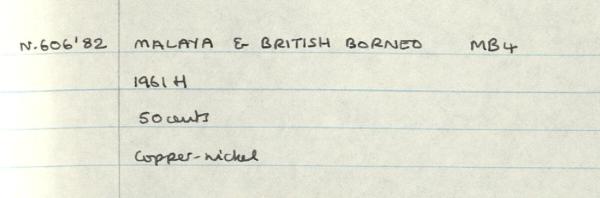 N.606'82 MALAYA & BRITISH BORNEO MB4
1961 H
50 cents
Copper-nickel